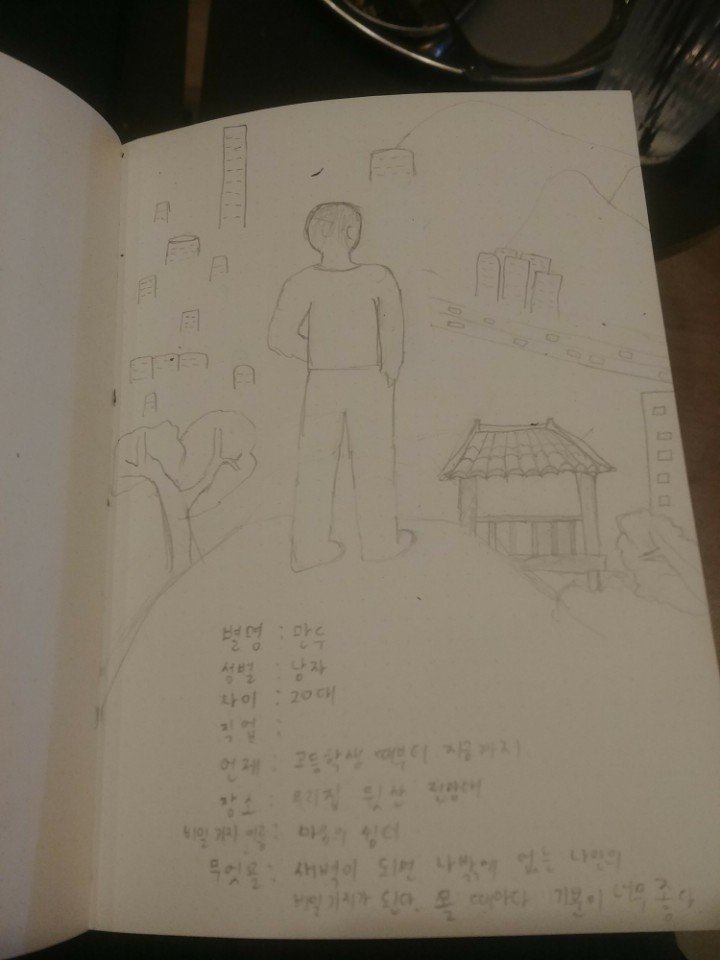 별명 : 만수
성별 : 남자
나이 : 20대
직업 :
언제 : 고등학생 때부터 지금까지
장소 : 우리집 뒷산 전망대
비밀기지 이름 : 마음의 쉼터
무엇을 : 새벽이 되면 나밖에 없는 나만의
비밀기지가 된다. 올 때마다 기분이 너무 좋다